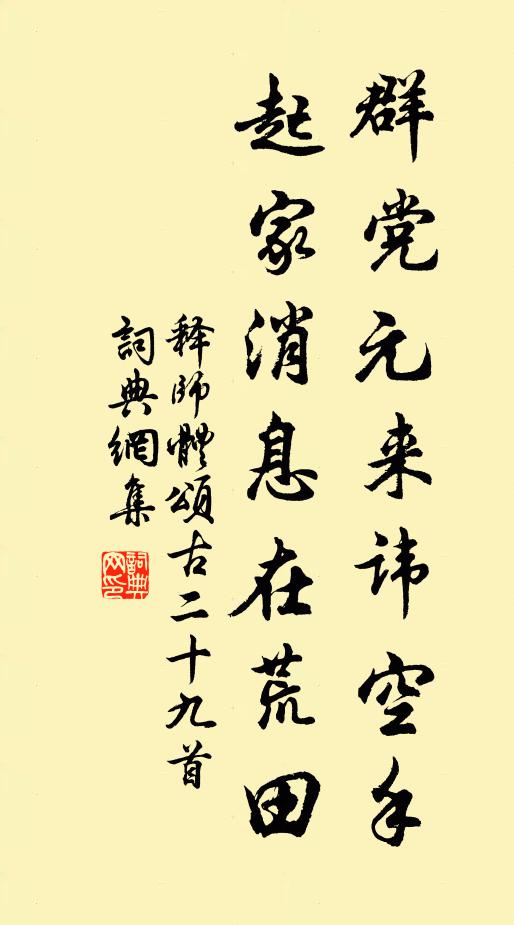 群党元来讳空手
起家消息在荒田
释师體頌古二十九首
詞典網集
詞典网印